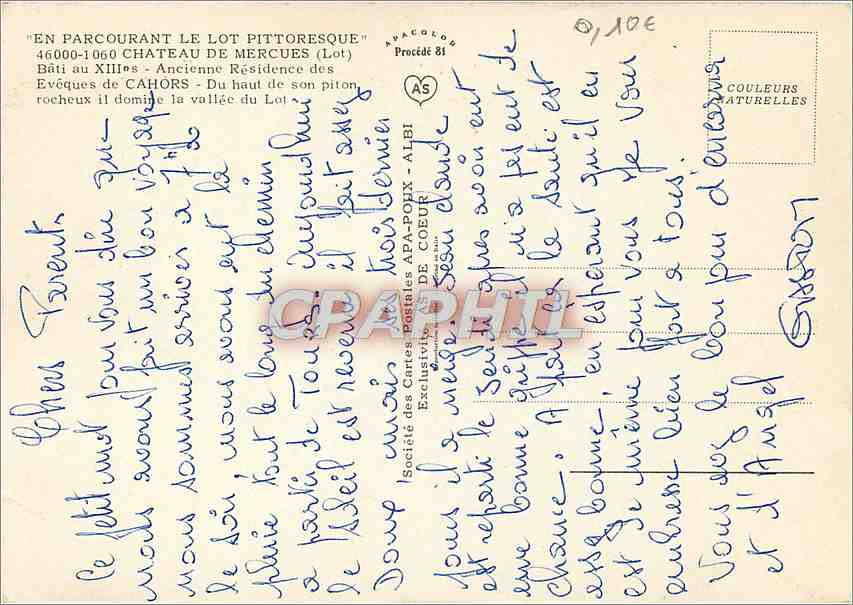 "EN PARCOURANT LE LOT PITTORESQUE"
46000-1060 CHATEAU DE MERCUES (Lot)
Bâti au XIIIes - Ancienne Résidence des
Evêques de CAHORS - Du haut de son piton
rocheux il domine la vallée du Lot.
APACOLOR
Procédé 81
AS
0,10€
COULEURS
NATURELLES
Société des Cartes Postales APA-POUX - ALBI
Exclusivité AS DE COEUR
CPAPHIL
Chers Parents
Ce petit mot pour vous dire que
nous avons fait un bon voyage
nous sommes arrivés a 7h
le soir, nous avons eut la
pluie tout le long du chemin
a partir de Tours. aujourd'hui
le soleil est revenu il fait assez
Doux, mais ses trois dernier
jours il a neigé. Jean claude
est reparti le Jeudi apres avoir eut
une bonne grippe il n'a pas eut de
chance. A part ça la santé est
assez bonne, en esperant qu'il en
est de même pour vous je vous
embrasse bien fort a tous.
Vous avez le bonjour d'encarna
et d'Angel